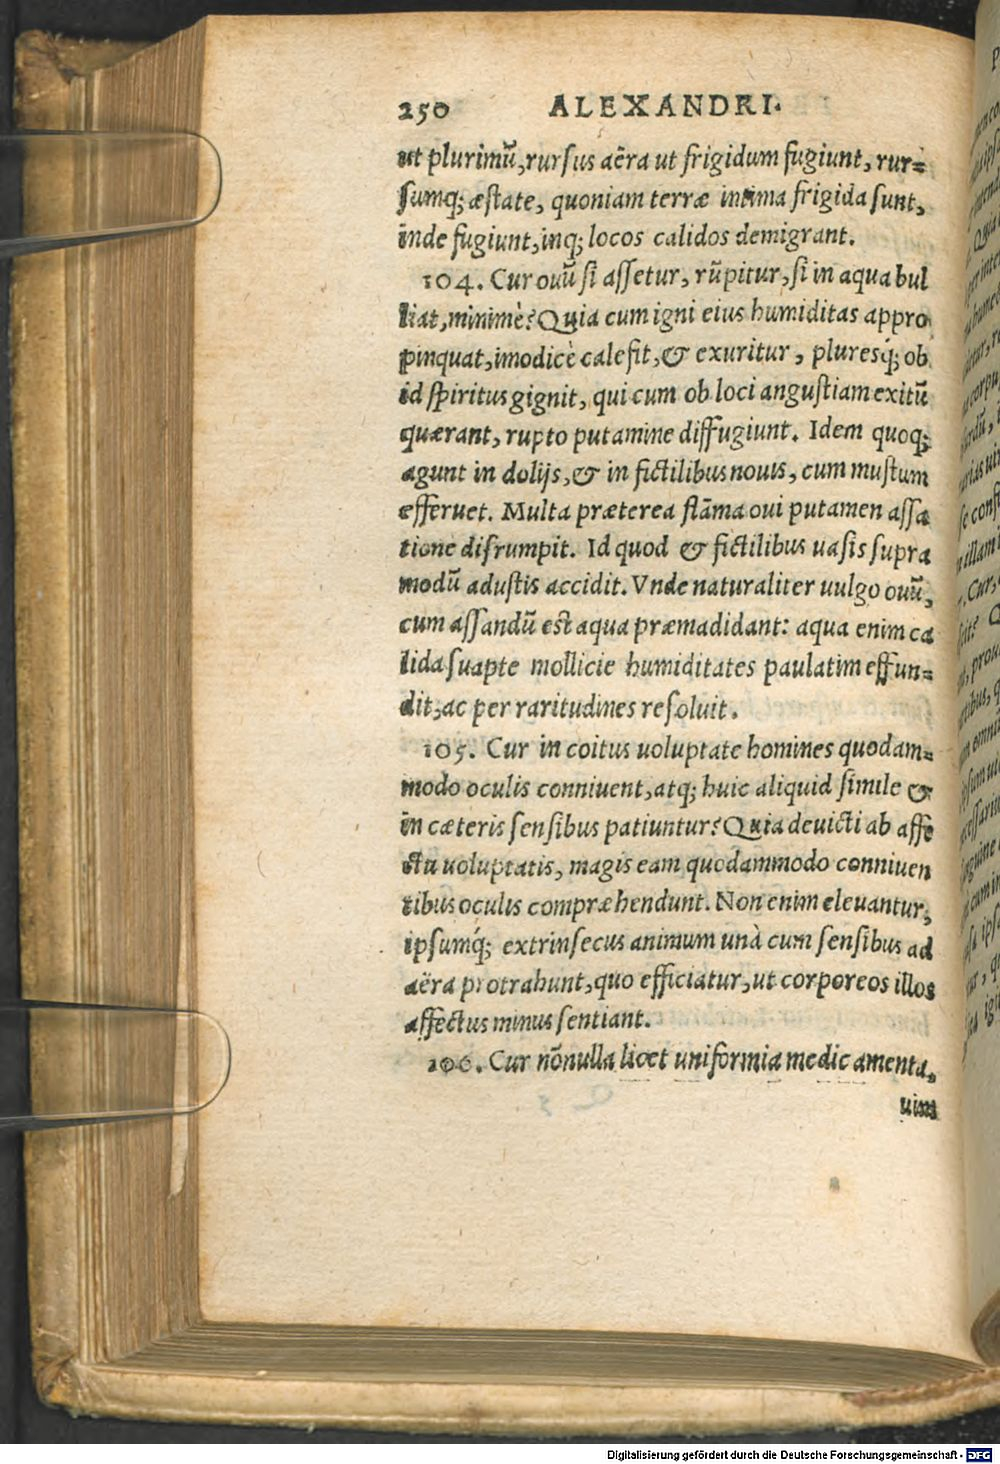 250 ALEXANDRI.
ut plurimũ, rursus aëra ut frigidum fugiunt, rur=
sumq; æstate, quoniam terræ intima frigida sunt,
inde fugiunt, inq; locos calidos demigrant.
104. Cur ouũ si assetur, rũpitur, si in aqua bul
liat, minimè? Quia cum igni eius humiditas appro
pinquat, imodicè calefit, & exuritur, pluresq́; ob
id spiritus gignit, qui cum ob loci angustiam exitũ
quærant, rupto putamine diffugiunt. Idem quoq;
agunt in dolijs, & in fictilibus nouis, cum mustum
efferuet. Multa præterea flãma oui putamen assa
tione disrumpit. Id quod & fictilibus uasis supra
modũ adustis accidit. Vnde naturaliter uulgo ouũ,
cum assandũ est aqua præmadidant: aqua enim ca
lida suapte mollicie humiditates paulatim effun=
dit, ac per raritudines resoluit.
105. Cur in coitus uoluptate homines quodam=
modo oculis conniuent, atq; huic aliquid simile &
in cæteris sensibus patiuntur? Quia deuicti ab affe
ctu uoluptatis, magis eam quodammodo conniuen
tibus oculis compræhendunt. Non enim eleuantur,
ipsumq́; extrinsecus animum unà cum sensibus ad
aëra protrahunt, quo efficiatur, ut corporeos illos
affectus minus sentiant.
106. Cur nõnulla licet uniformia medicamenta,
uim
Digitalisierung gefördert durch die Deutsche Forschungsgemeinschaft - DFG